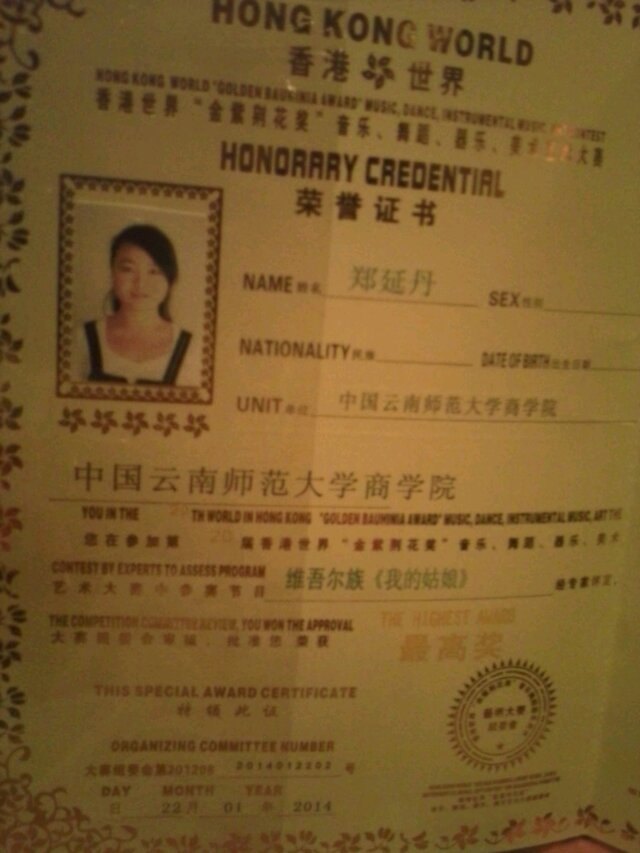 HONG KONG WORLD
香港 世界
HONG KONG WORLD "GOLDEN BAUHINIA AWARD" MUSIC, DANCE, INSTRUMENTAL MUSIC, CONTEST
香港世界“金紫荆花奖”音乐、舞蹈、器乐、美术 大赛
HONORARY CREDENTIAL
荣誉证书
NAME 姓名 郑延丹 SEX 性别
NATIONALITY 民族 DATE OF BIRTH 出生日期
UNIT 单位 中国云南师范大学商学院
中国云南师范大学商学院
YOU IN THE 20 TH WORLD IN HONG KONG "GOLDEN BAUHINIA AWARD" MUSIC, DANCE, INSTRUMENTAL MUSIC, ART THE
您在参加第 20 届香港世界“金紫荆花奖”音乐、舞蹈、器乐、美术
CONTEST BY EXPERTS TO ASSESS PROGRAM
艺术大赛中参赛节目 维吾尔族《我的姑娘》 经专家评定,
THE COMPETITION COMMITTEE REVIEW, YOU WON THE APPROVAL THE HIGHEST AWARD
大赛组委会审核、批准您荣获 最高奖
THIS SPECIAL AWARD CERTIFICATE
特颁此证
ORGANIZING COMMITTEE NUMBER
大赛组委会第201208 2014012202 号
DAY MONTH YEAR
日 22月 01 年 2014